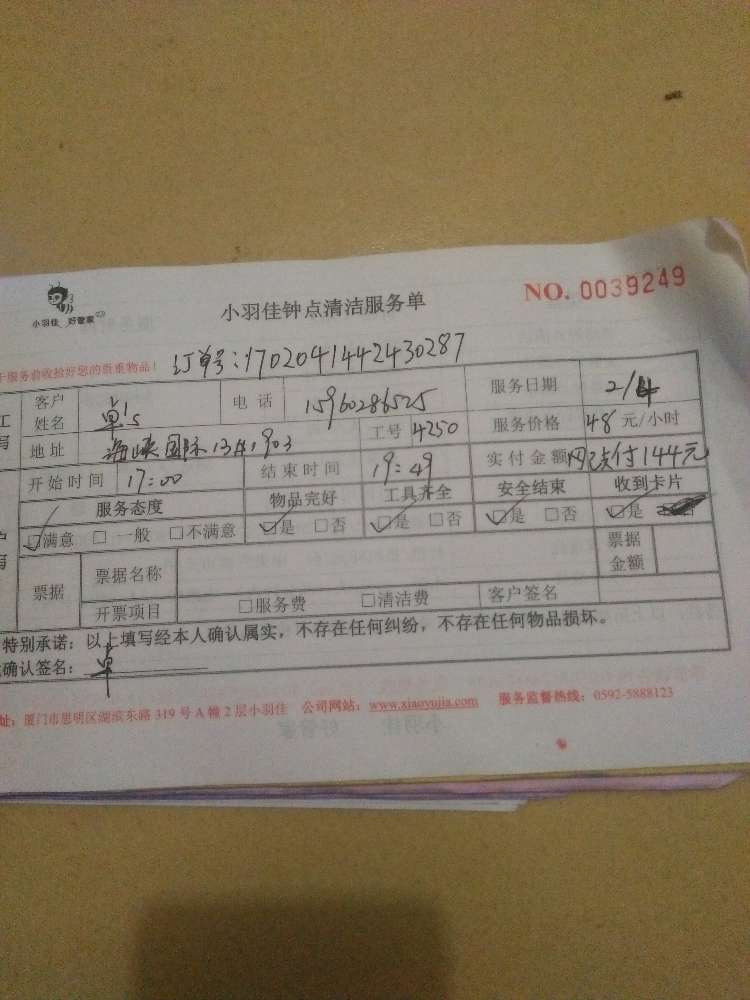 小羽佳 好管家
小羽佳钟点清洁服务单
NO. 0039249
于服务前收拾好您的贵重物品！ 订单号：1702041442430287
客户姓名 卓's 电话 15960286525 服务日期 2/4
地址 海峡国际 1903 工号 4250 服务价格 48 元/小时
开始时间 17:00 结束时间 19:49 实付金额 网改付144元
服务态度 物品完好 工具齐全 安全结束 收到卡片
☑满意 □ 一般 □不满意 ☑是 □否 ☑是 □否 ☑是 □否 ☑是
票据 票据名称 票据金额
开票项目 □服务费 □清洁费 客户签名
特别承诺：以上填写经本人确认属实，不存在任何纠纷，不存在任何物品损坏。
确认签名：卓
址：厦门市思明区湖滨东路 319 号 A 幢 2 层小羽佳 公司网站：www.xiaoyujia.com 服务监督热线：0592-5888123